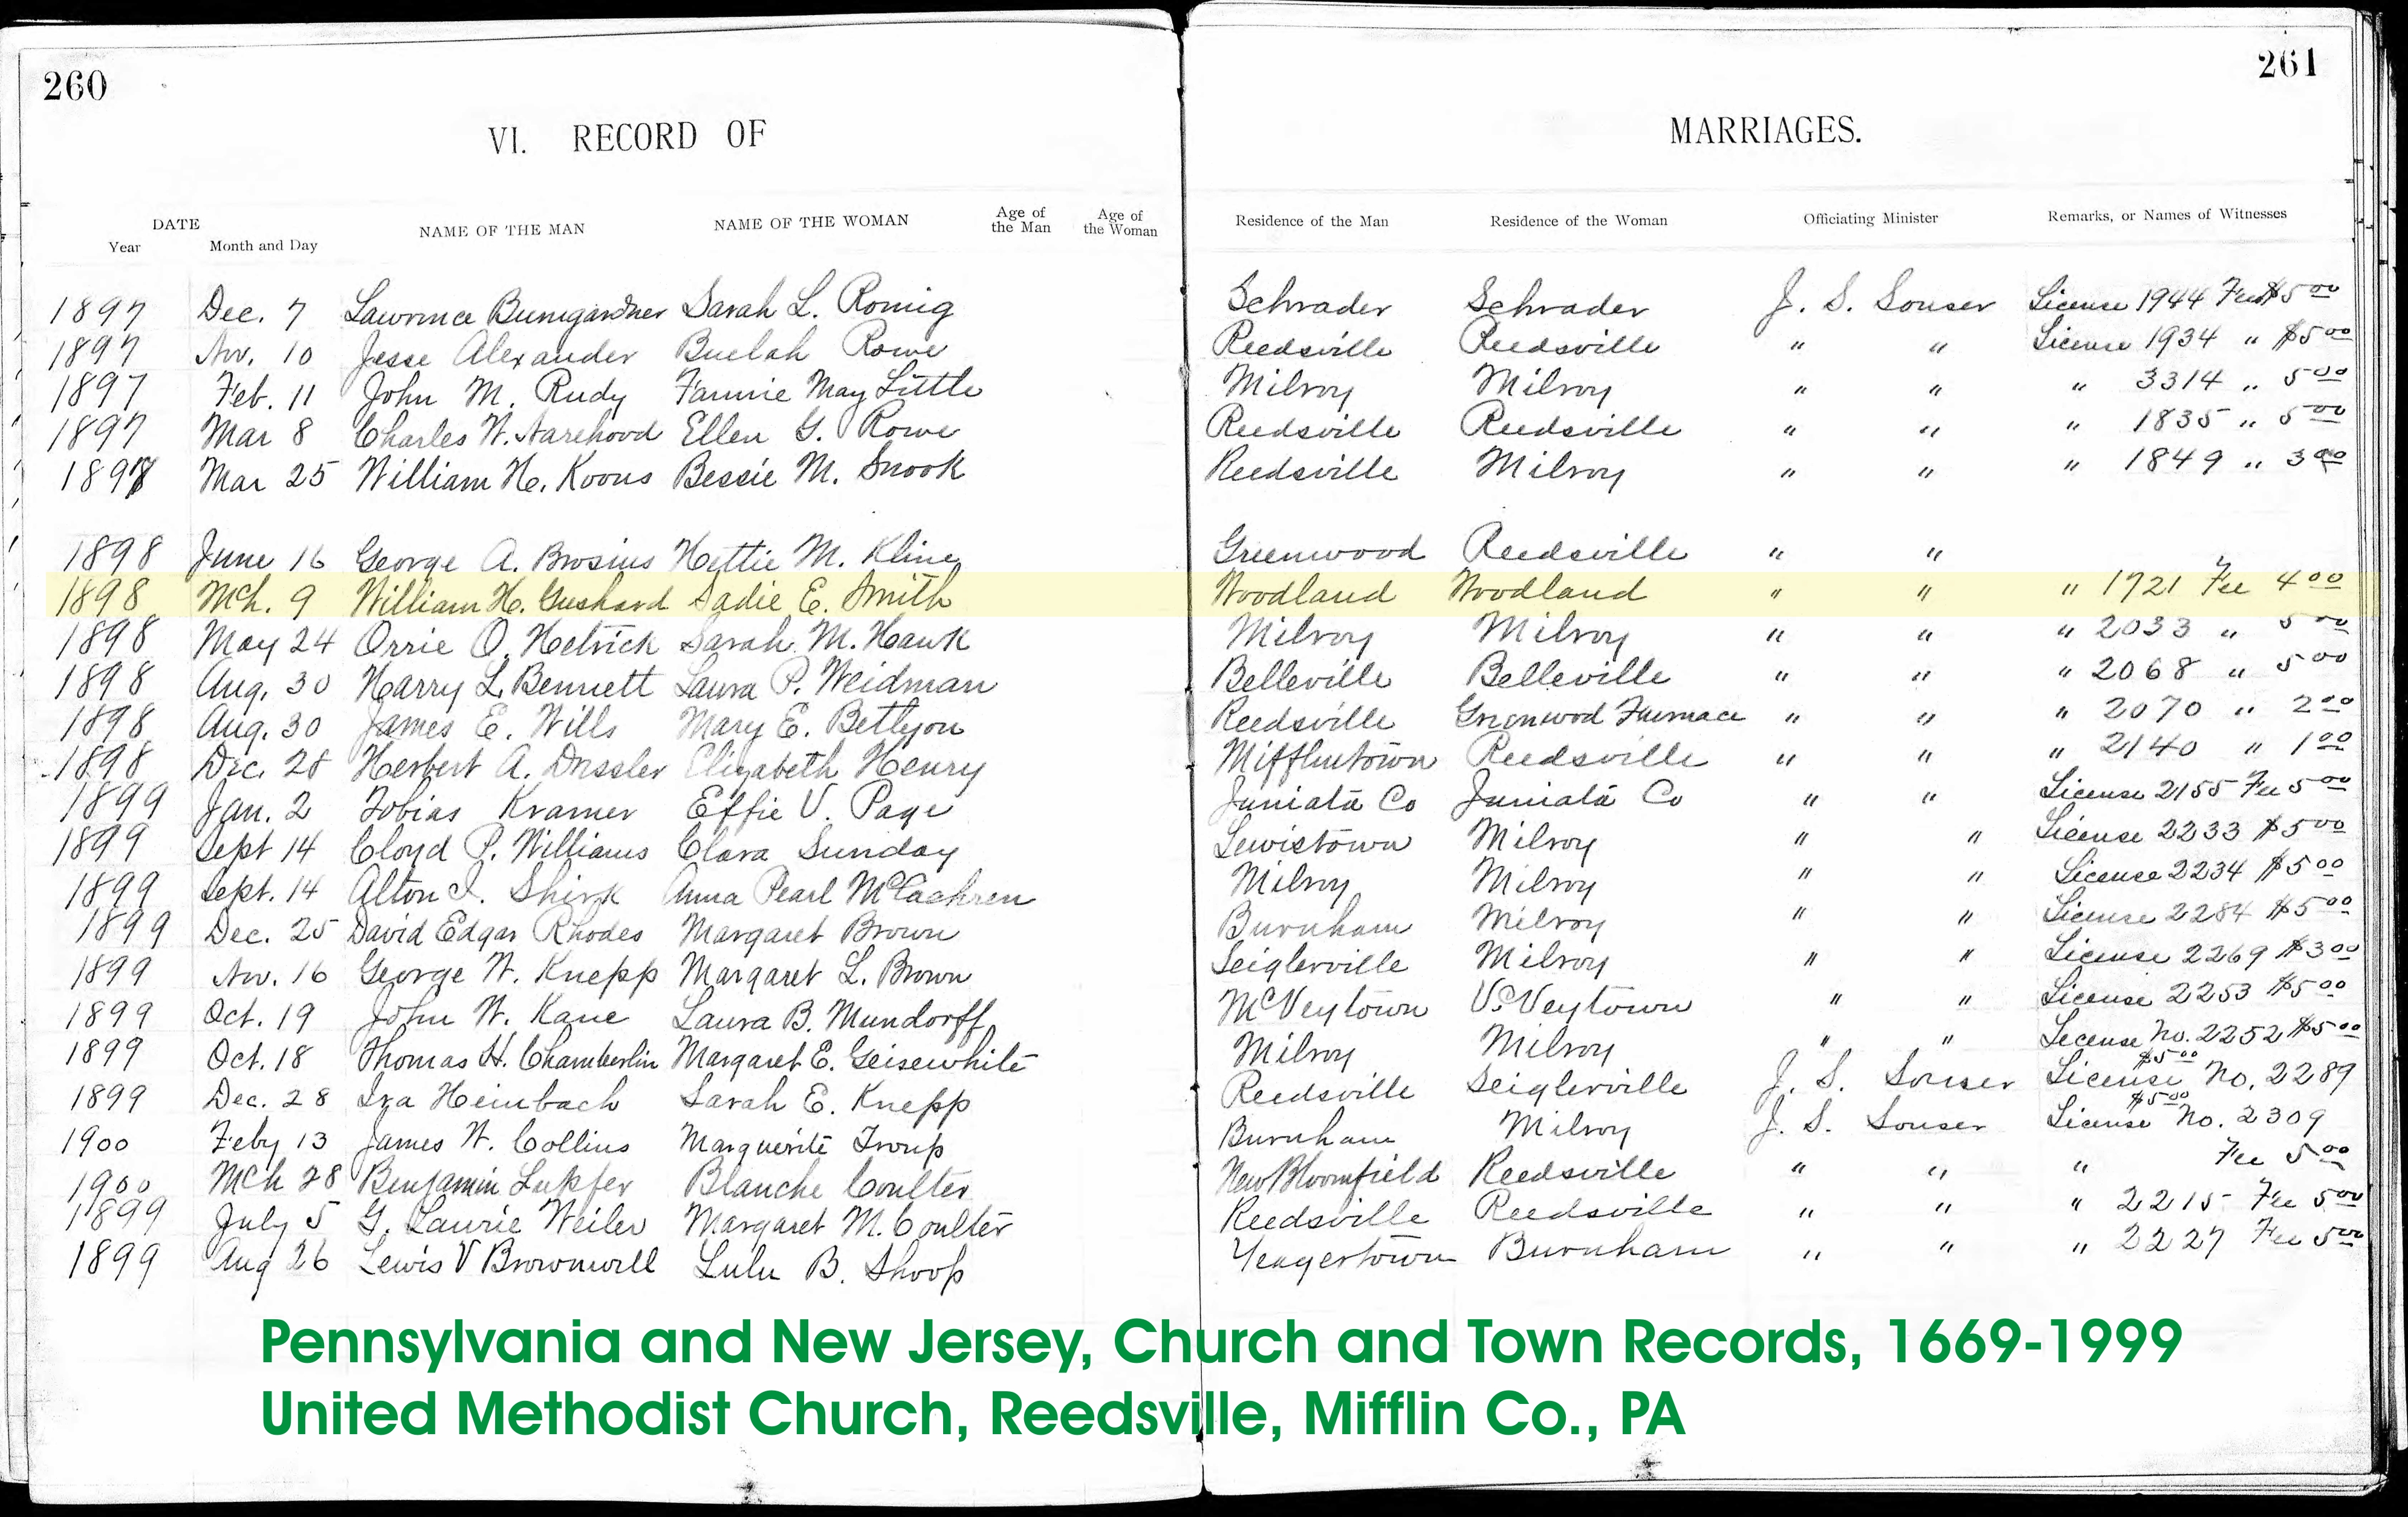 260
261
VI. RECORD OF MARRIAGES.
DATE
Year Month and Day NAME OF THE MAN NAME OF THE WOMAN Age of the Man Age of the Woman Residence of the Man Residence of the Woman Officiating Minister Remarks, or Names of Witnesses
1897 Dec. 7 Lawrence Bumgardner Sarah L. Romig Schrader Schrader J. S. Souser License 1944 Fee $5 00
1897 Nov. 10 Jesse Alexander Buelah Rowe Reedsville Reedsville " " License 1934 " $5 00
1897 Feb. 11 John M. Rudy Fannie May Little Milroy Milroy " " " 3314 " 5 00
1897 Mar 8 Charles W. Ellen G. Rowe Reedsville Reedsville " " " 1835 " 5 00
1898 Mar 25 William H. Koons Bessie M. Snook Reedsville Milroy " " " 1849 " 3 00
1898 June 16 George A. Brosius Hettie M. Kline Greenwood Reedsville " "
1898 Mch. 9 William H. Gushard Sadie E. Smith Woodland Woodland " " " 1721 Fee 4 00
1898 May 24 Orrie O. Hetrick Sarah M. Hawk Milroy Milroy " " " 2033 " 5 00
1898 Aug. 30 Harry L. Bennett Laura P. Weidman Belleville Belleville " " " 2068 " 5 00
1898 Aug. 30 James E. Wills Mary E. Bettyon Reedsville Greenwood Furnace " " " 2070 " 2 00
1898 Dec. 28 Herbert A. Dressler Elizabeth Henry Mifflintown Reedsville " " " 2140 " 1 00
1899 Jan. 2 Tobias Kramer Effie V. Page Juniata Co Juniata Co " " License 2155 Fee 5 00
1899 Sept 14 Cloyd P. Williams Clara Sunday Lewistown Milroy " " License 2233 $5 00
1899 Sept. 14 Alton I. Shirk Anna Pearl McCachren Milroy Milroy " " License 2234 $5 00
1899 Dec. 25 David Edgar Rhodes Margaret Brown Burnham Milroy " " License 2284 $5 00
1899 Nov. 16 George W. Knepp Margaret L. Brown Seiglerville Milroy " " License 2269 $3 00
1899 Oct. 19 John W. Kane Laura B. Mundorff McVeytown Veytown " " License 2253 $5 00
1899 Oct. 18 Thomas H. Chamberlin Margaret E. Geisewhite Milroy Milroy " " License No. 2252 $5 00
1899 Dec. 28 Ira Heimbach Sarah E. Knepp Reedsville Seiglerville J. S. Souser License $5 00 No. 2289
1900 Feby 13 James W. Collins Marguerite Troup Burnham Milroy J. S. Souser License $5 00 No. 2309
1900 Mch 28 Benjamin Lupfer Blanche Coulter New Bloomfield Reedsville " " " Fee 5 00
1899 July 5 G. Laurie Weiler Margaret M. Coulter Reedsville Reedsville " " " 2215 Fee 5 00
1899 Aug 26 Lewis V Brownwell Lulu B. Shoop Yeagertown Burnham " " " 2227 Fee 5 00
Pennsylvania and New Jersey, Church and Town Records, 1669-1999
United Methodist Church, Reedsville, Mifflin Co., PA